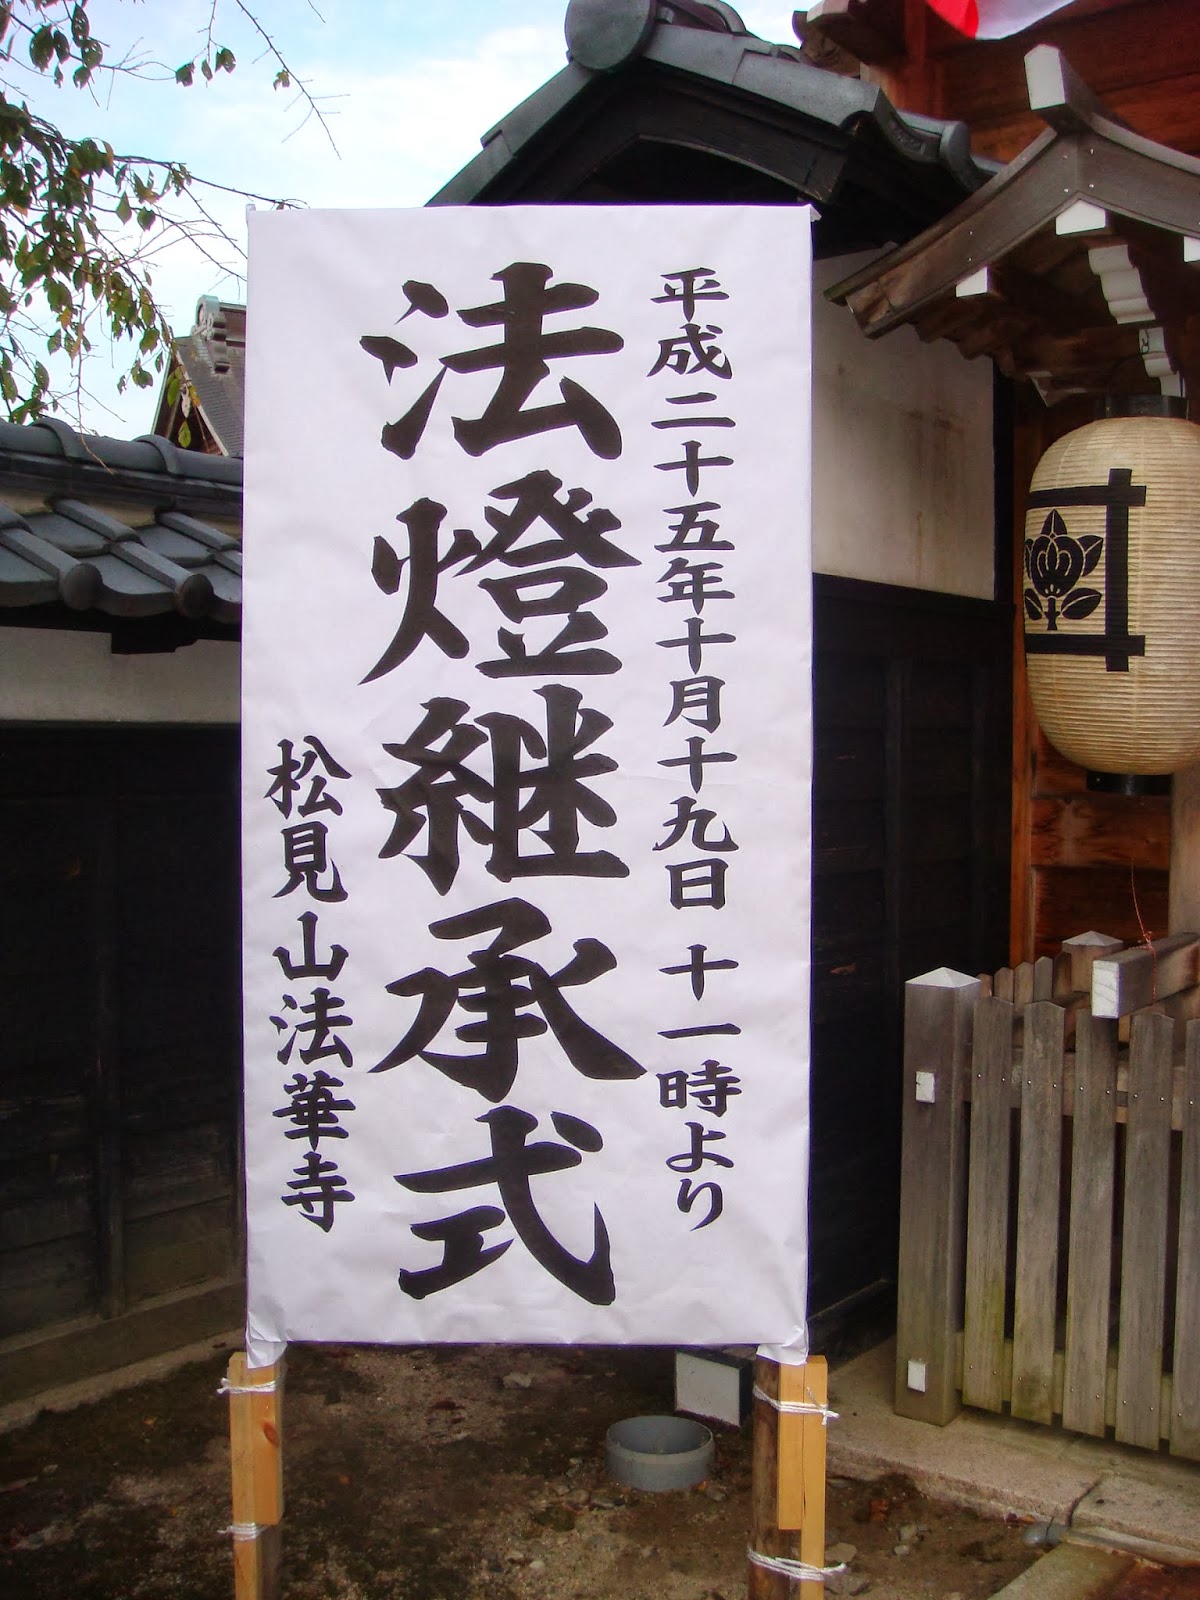 平成二十五年十月十九日 十一時より
法燈継承式
松見山法華寺